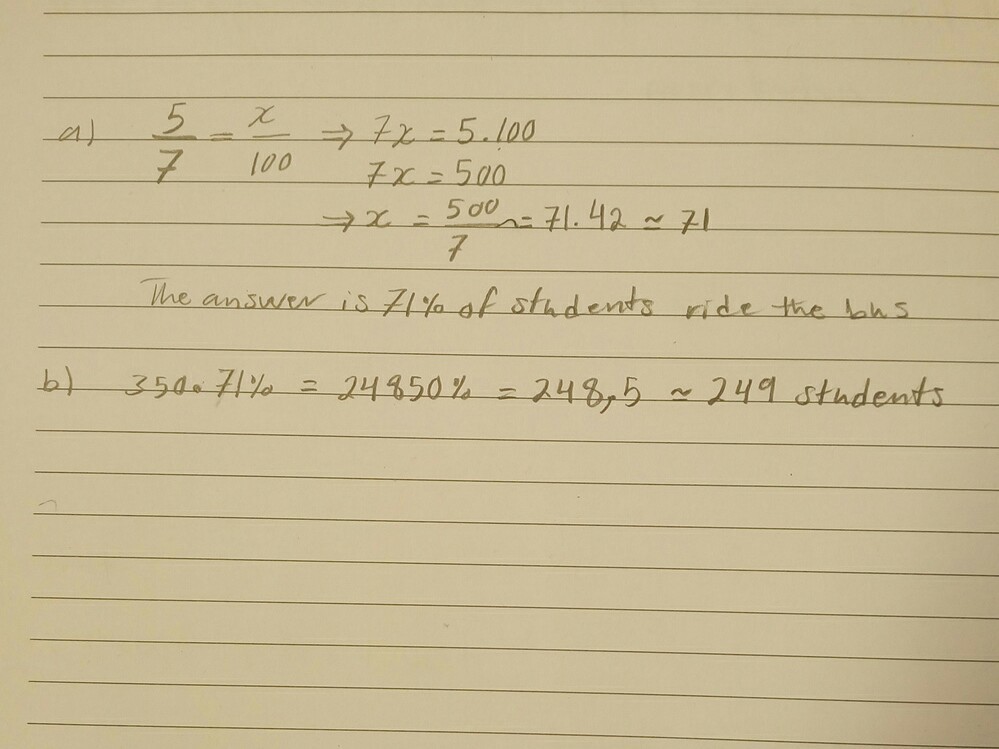 a) 5/7 = x/100 ⇒ 7x = 5.100
7x = 500
⇒ x = 500/7 = 71.42 ≃ 71
The answer is 71% of students ride the bus
b) 350. 71% = 24850% = 248,5 ≃ 249 students